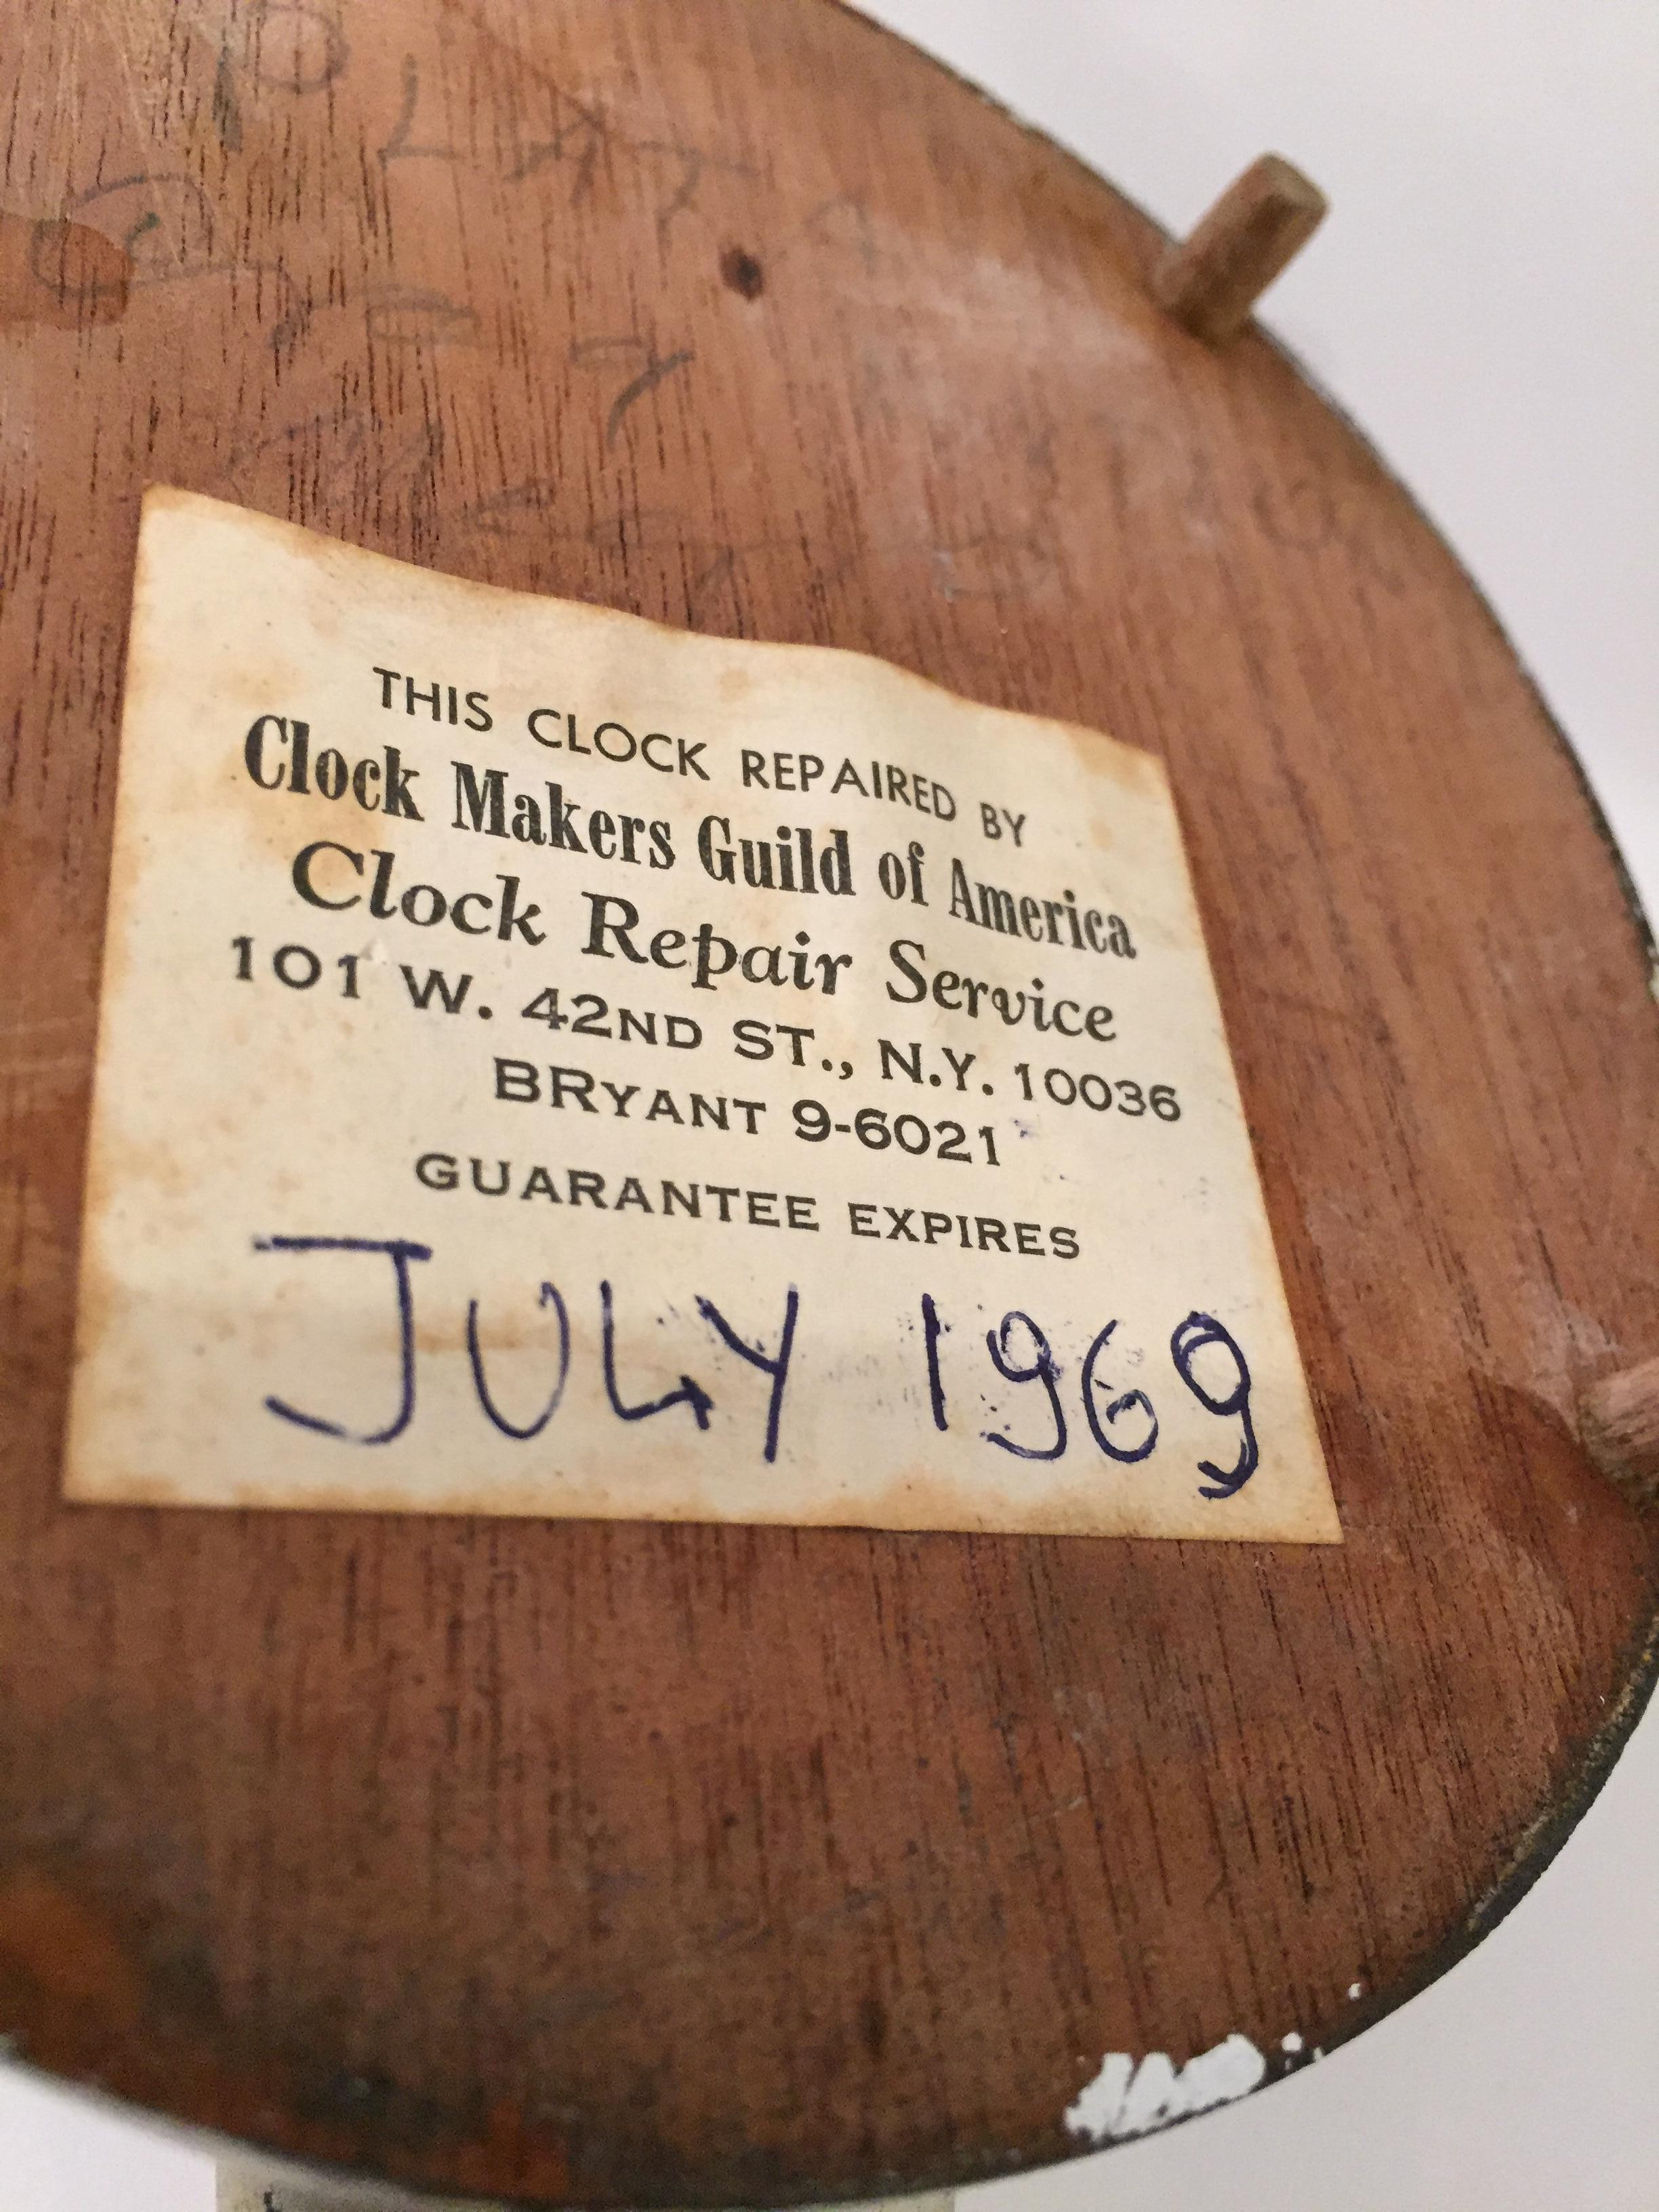 THIS CLOCK REPAIRED BY
Clock Makers Guild of America
Clock Repair Service
101 W. 42ND ST., N.Y. 10036
BRYANT 9-6021
GUARANTEE EXPIRES
JULY 1969